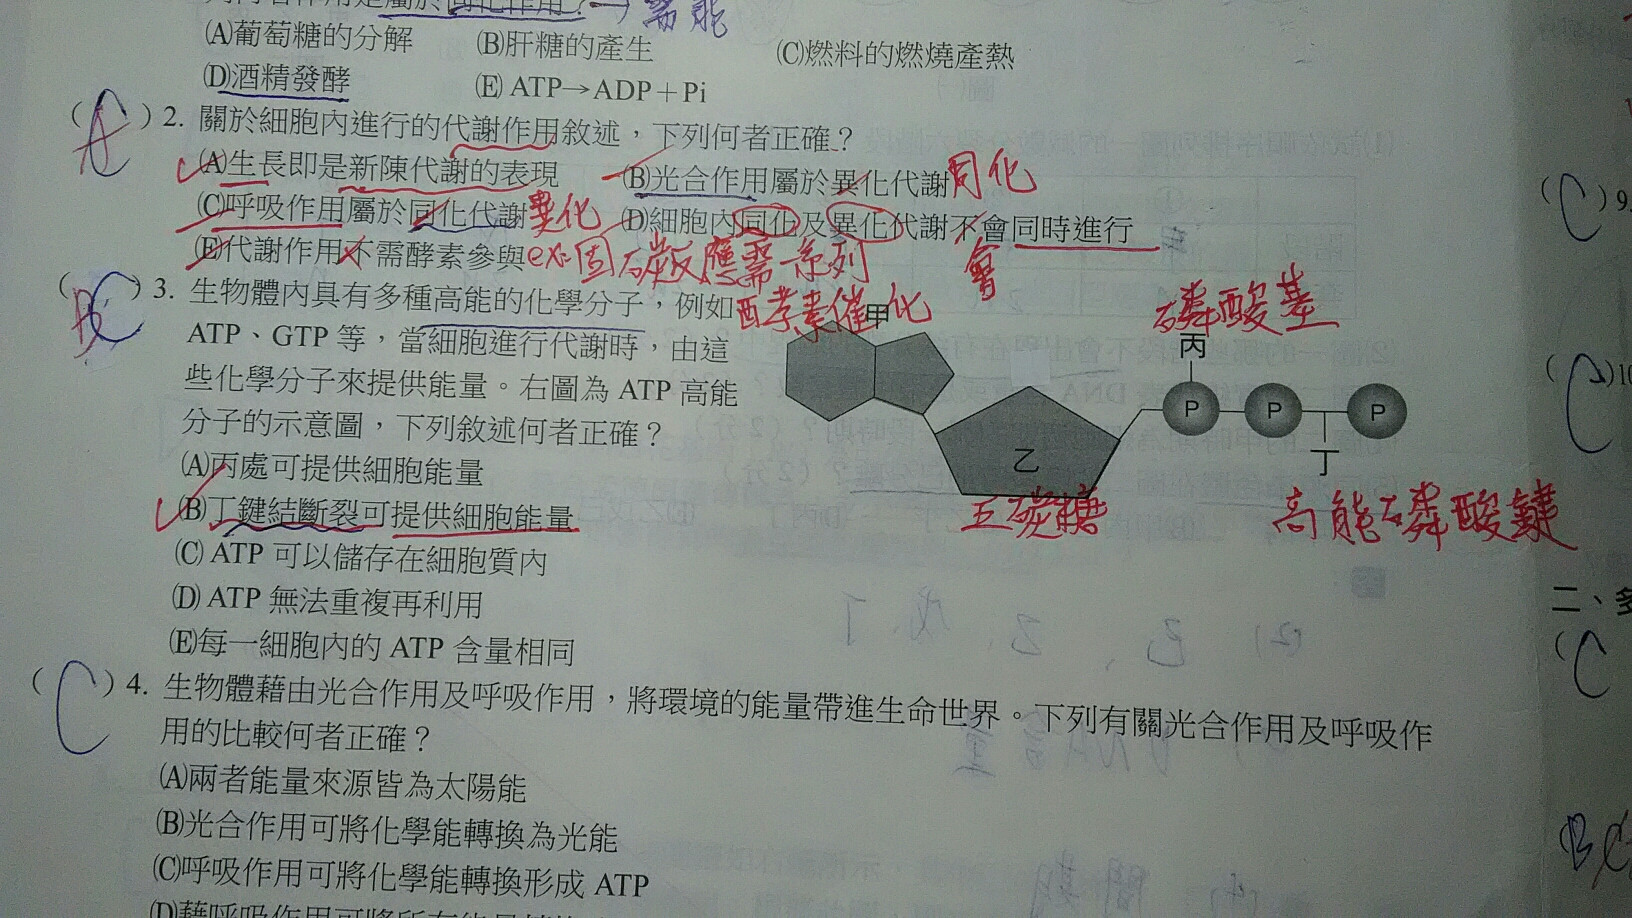 屬於同化作用?→需能
(A)葡萄糖的分解 (B)肝糖的產生 (C)燃料的燃燒產熱
(D)酒精發酵 (E) ATP→ADP+Pi
(A) 2. 關於細胞內進行的代謝作用敘述，下列何者正確？
(A)生長即是新陳代謝的表現 (B)光合作用屬於異化代謝 同化
(C)呼吸作用屬於同化代謝 異化 (D)細胞內同化及異化代謝不會同時進行
會
(E)代謝作用不需酵素參與 ex:固碳反應需系列
酵素催化
(B) 3. 生物體內具有多種高能的化學分子，例如
ATP、GTP 等，當細胞進行代謝時，由這
些化學分子來提供能量。右圖為 ATP 高能
分子的示意圖，下列敘述何者正確？
甲
磷酸基
丙
P P P
乙
丁
五碳糖
高能磷酸鍵
(A)丙處可提供細胞能量
(B)丁鍵結斷裂可提供細胞能量
(C) ATP 可以儲存在細胞質內
(D) ATP 無法重複再利用
(E)每一細胞內的 ATP 含量相同
(C) 4. 生物體藉由光合作用及呼吸作用，將環境的能量帶進生命世界。下列有關光合作用及呼吸作
用的比較何者正確？
(A)兩者能量來源皆為太陽能
(B)光合作用可將化學能轉換為光能
(C)呼吸作用可將化學能轉換形成 ATP
(D)藉呼吸作用可將所有能量
(C) 9.
(C) 10
二、多
(C
B